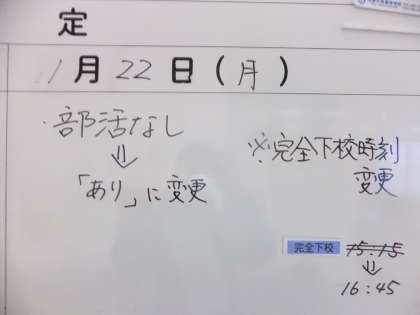 定
11月22日(月)
・部活なし
⇓
「あり」に変更
※完全下校時刻
変更
完全下校 15:15
⇓
16:45